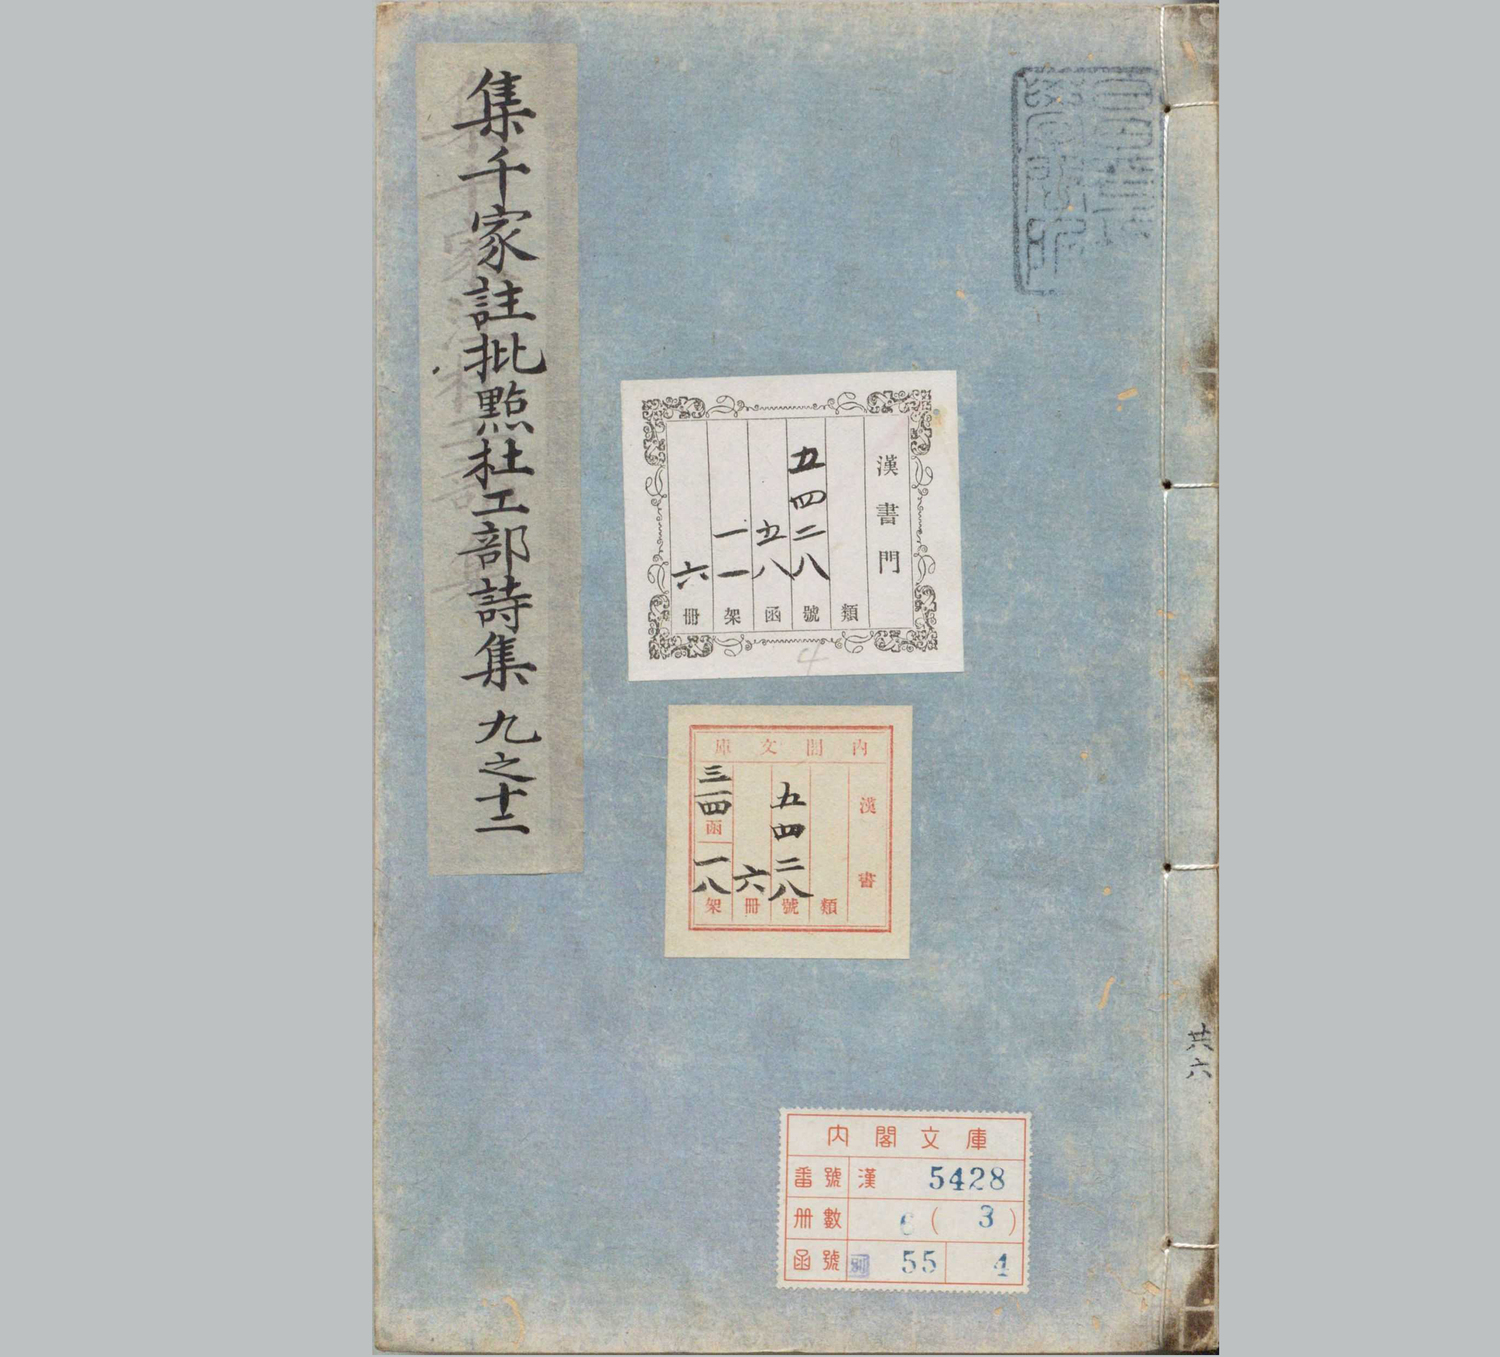 集千家註批點杜工部詩集 九之十二
漢書門
類
五四二八號
五八函
一一架
六冊
4
內閣文庫
漢書
類
五四二八號
六冊
三四函
一八架
共六
內閣文庫
番號 漢 5428
冊數 6 ( 3 )
函號 別 55 4